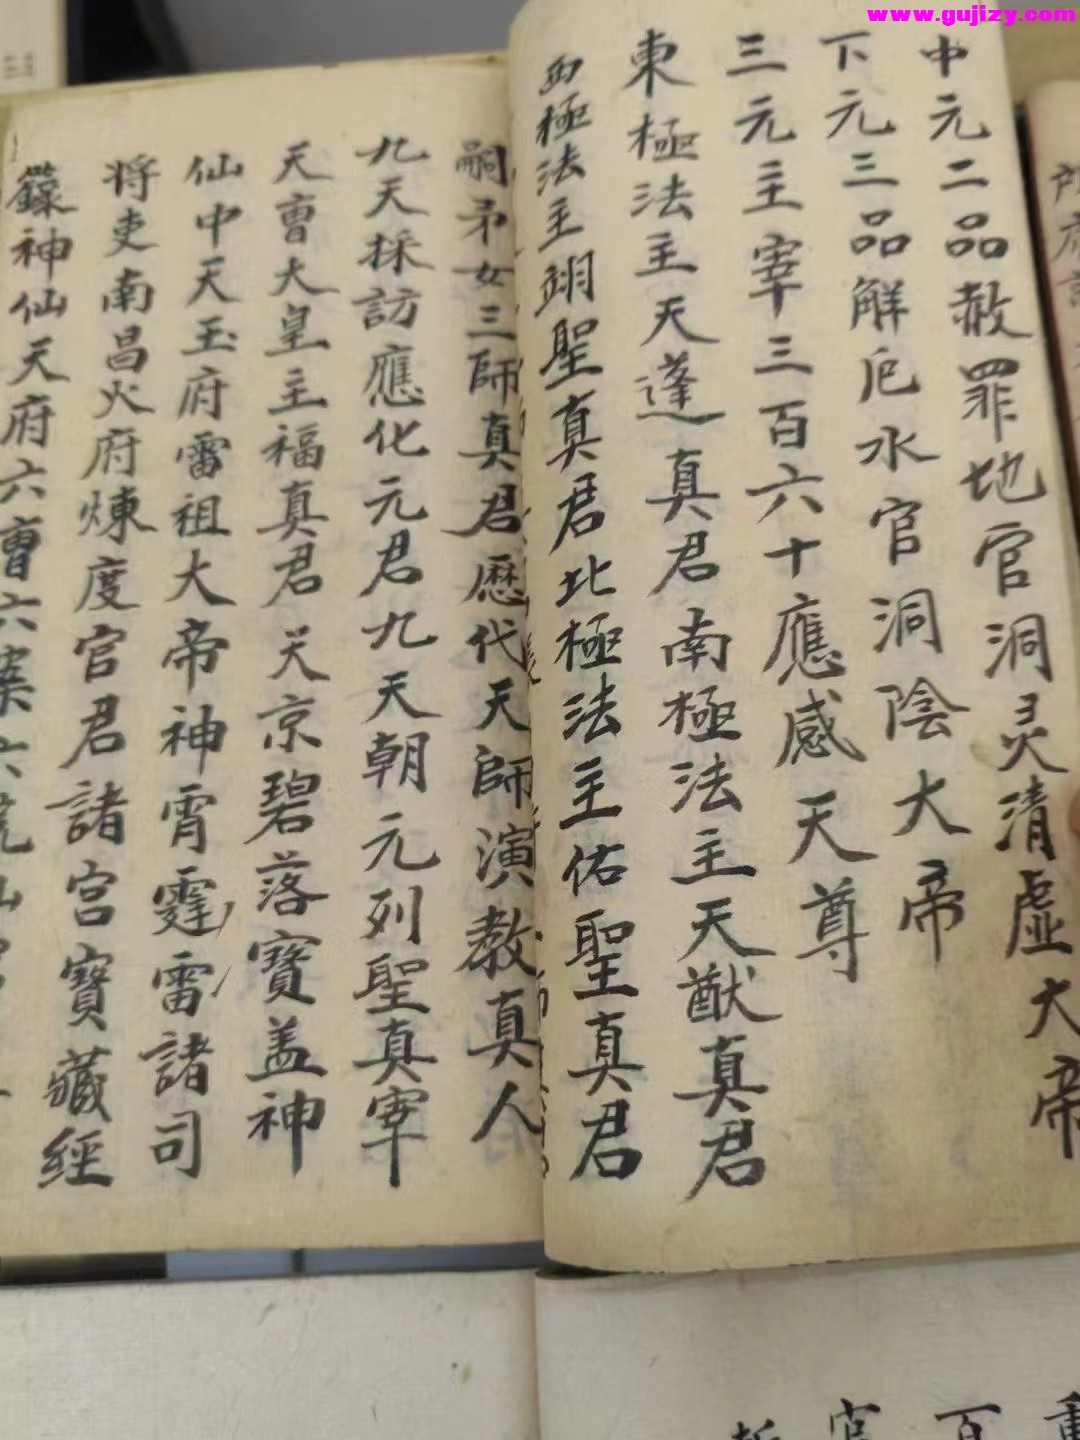 www.gujizy.com
中元二品赦罪地官洞灵清虚大帝
下元三品解厄水官洞陰大帝
三元主宰三百六十應感天尊
東極法主天蓬真君南極法主天猷真君
西極法主翊聖真君北極法主佑聖真君
嗣師女三師真君歷代天師演教真人
九天採訪應化元君九天朝元列聖真宰
天曹大皇主福真君天京碧落寶盖神
仙中天玉府雷祖大帝神霄霆雷諸司
将吏南昌火府煉度官君諸宫寶藏經
籙神仙天府六曹六案六
百